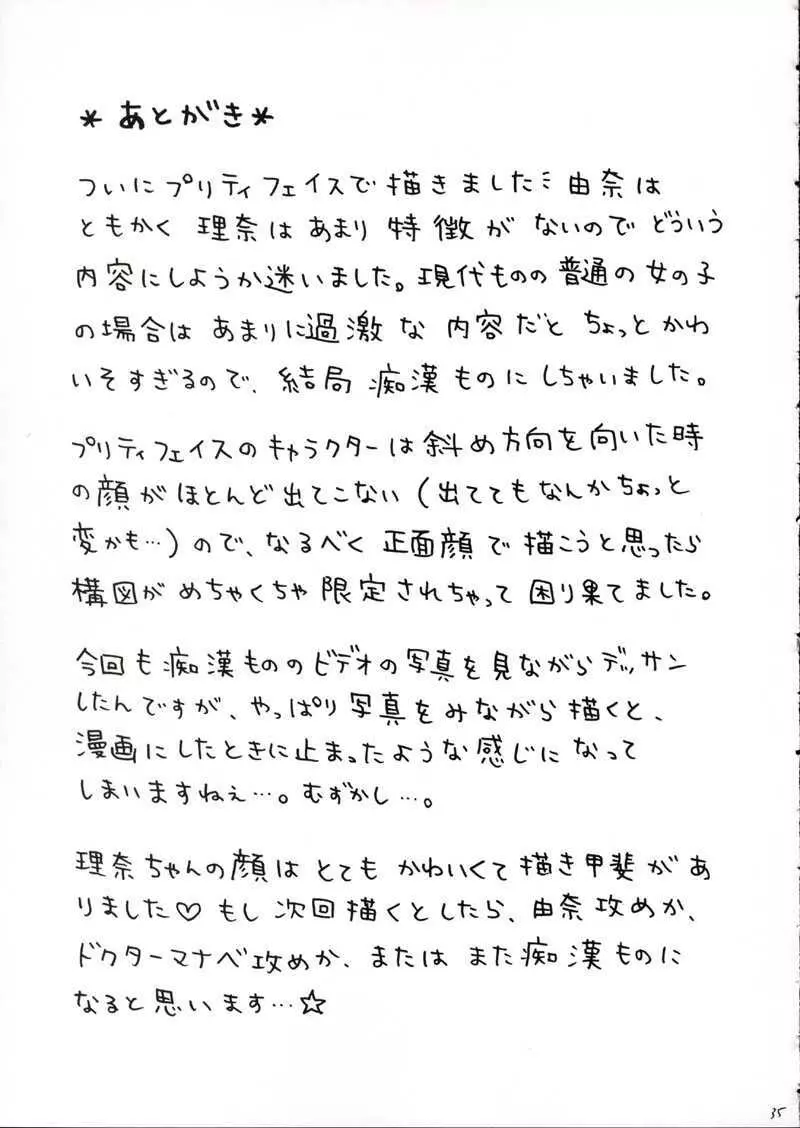 *あとがき*
ついにプリティフェイスで描きましたミ 由奈は
ともかく 理奈は あまり 特徴が ないので どういう
内容にしようか迷いました。現代ものの 普通の 女の子
の場合は あまりに過激な 内容だと ちょっと かわ
いそすぎるので、結局 痴漢 ものに しちゃいました。
プリティフェイスの キャラクターは 斜め方向を 向いた時
の顔が ほとんど 出てこない (出てても なんか ちょっと
変かも…)ので、なるべく 正面顔で 描こうと思ったら
構図が めちゃくちゃ 限定されちゃって 困り果てました。
今回も 痴漢もののビデオの写真を 見ながらデッサン
したんですが、やっぱり写真をみながら描くと、
漫画にしたときに止まったような感じになって
しまいますねぇ…。むずかし…。
理奈ちゃんの顔は とても かわいくて描き甲斐があ
りました♡ もし 次回描くとしたら、由奈攻めか、
ドクターマナベ攻めか、または また痴漢ものに
なると思います…☆
35